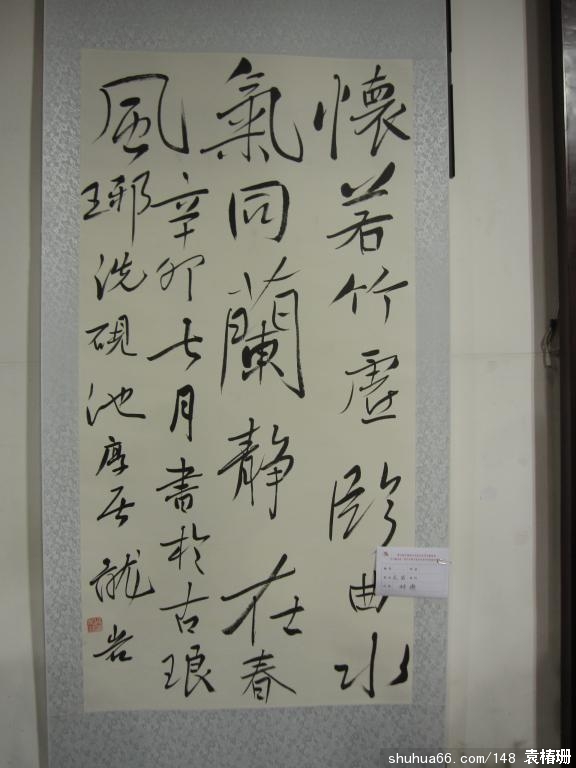 懷若竹虛臨曲水
氣同蘭靜在春
風
辛卯七月書於古琅
琊洗硯池
岩
shuhua66.com/148 袁椿珊